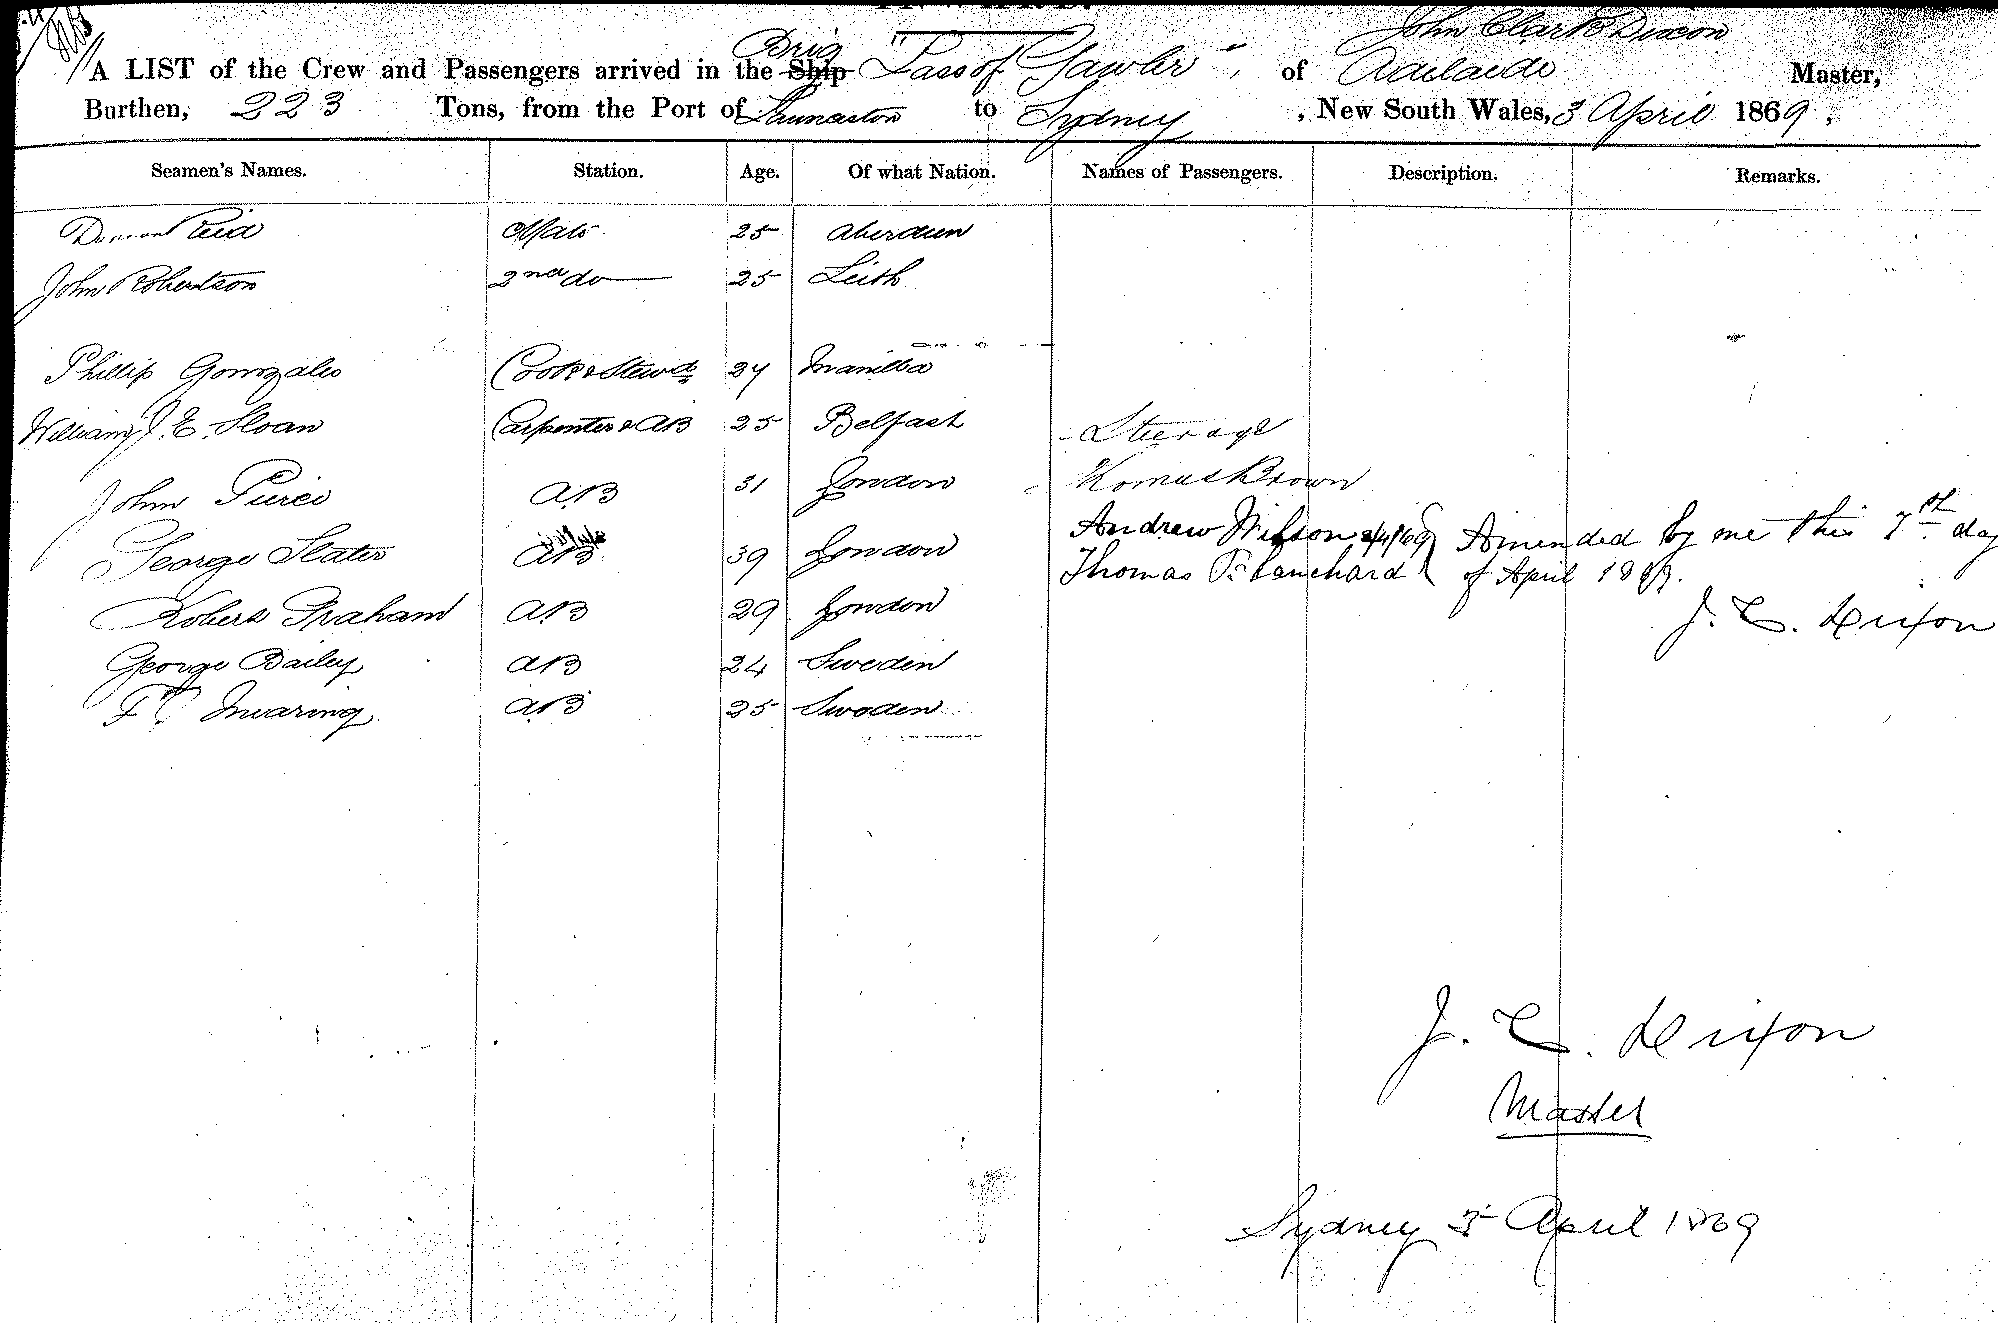 John Clark Dixon
Brig
A LIST of the Crew and Passengers arrived in the Ship "Lass of Gawler", of Adelaide Master,
Burthen, 223 Tons, from the Port of Launceston to Sydney, New South Wales, 3 April 1869.
Seamen's Names. Station. Age. Of what Nation. Names of Passengers. Description. Remarks.
Duncan Reid Mate 25 Aberdeen
John Robertson 2nd do 25 Leith
Phillip Gonzales Cook & Stewd 24 Manilla
William J. E. Sloan Carpenter & AB 25 Belfast Steerage
John Pierce AB 31 London Thomas Brown
George Slater AB 39 London Andrew Wilson Amended by me this 7th day
Thomas Blanchard of April 1869.
Robert Graham AB 29 London J. C. Dixon
George Bailey AB 24 Sweden
AB 25 Sweden
J. C. Dixon
Master
Sydney 3 April 1869